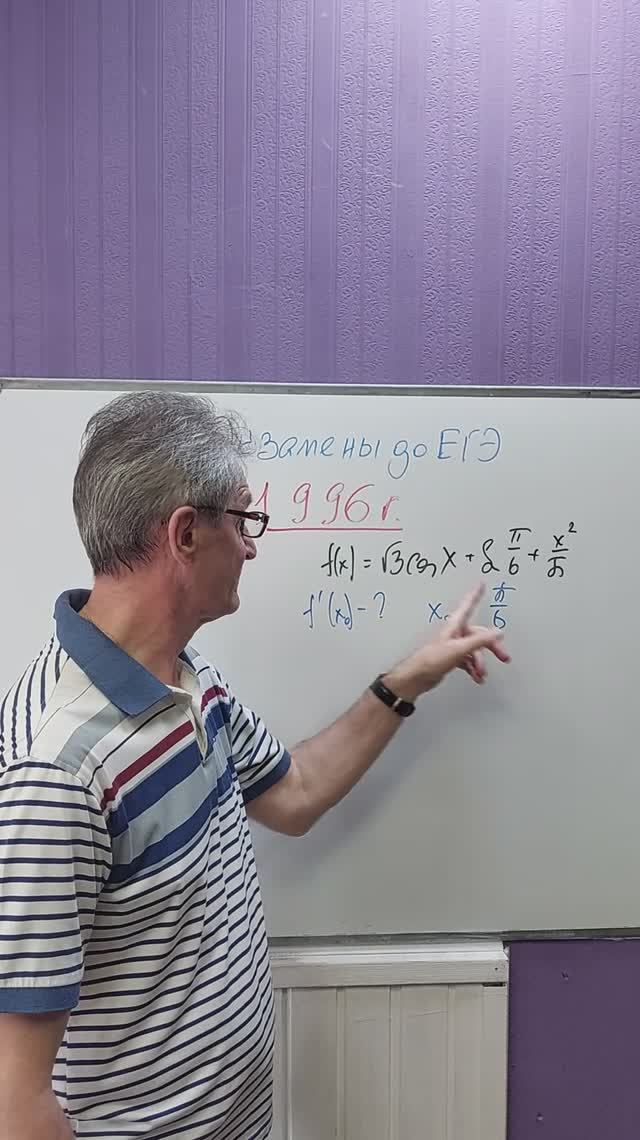 экзамены до ЕГЭ
1996 г.
f(x) = √3 cos x + 2 π/6 + x²/π
f'(x₀) - ? x₀ π/6